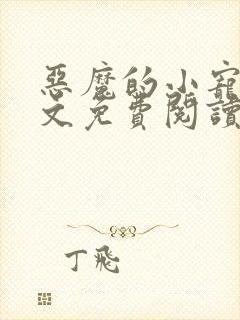 惡魔的小寵
文免費閱讀
丁飛